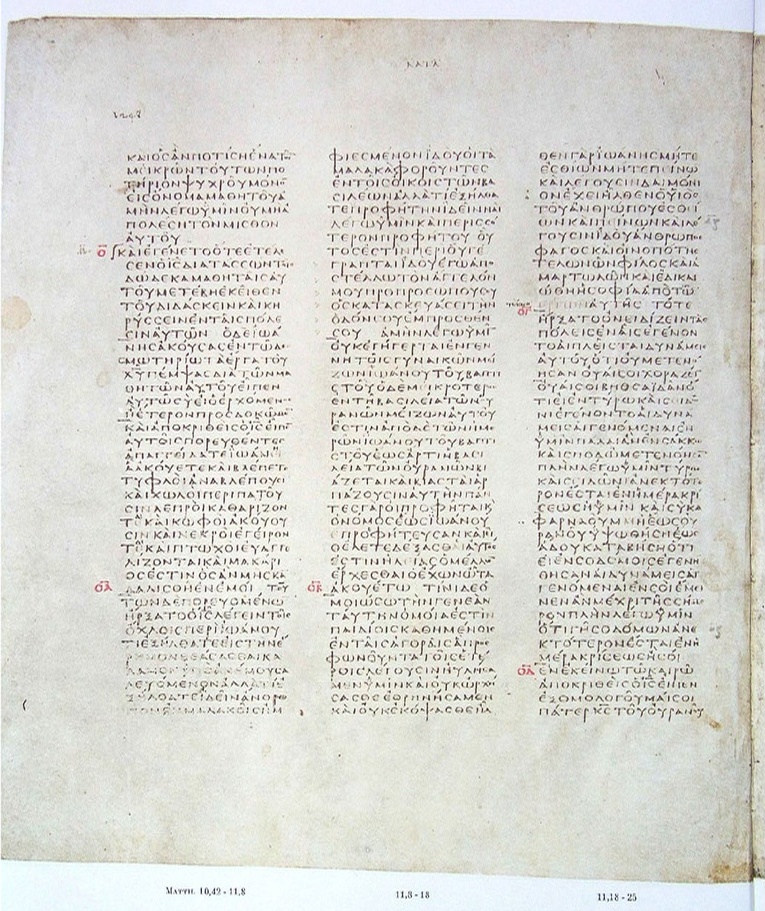 ΚΑΤΑ
ΚΑΙΟΣΑΝΠΟΤΙΣΗΕΝΑΤΩ
ΜΕΙΚΡΩΝΤΟΥΤΩΝΠΟ
ΤΗΡΙΟΝΨΥΧΡΟΥΜΟΝΟ
ΕΙΣΟΝΟΜΑΜΑΘΗΤΟΥΑ
ΜΗΝΛΕΓΩΥΜΙΝΟΥΜΗΑ
ΠΟΛΕΣΗΤΟΝΜΙΣΘΟΝ
ΑΥΤΟΥ
Ο ΚΑΙΕΓΕΝΕΤΟΟΤΕΕΤΕΛΕ
ΣΕΝΟΙΣΔΙΑΤΑΣΣΩΝΤΟΙΣ
ΔΩΔΕΚΑΜΑΘΗΤΑΙΣΑΥ
ΤΟΥΜΕΤΕΒΗΕΚΕΙΘΕΝ
ΤΟΥΔΙΔΑΣΚΕΙΝΚΑΙΚΗ
ΡΥΣΣΕΙΝΕΝΤΑΙΣΠΟΛΕ
ΣΙΝΑΥΤΩΝ ΟΔΕΙΩΑ
ΝΗΣΑΚΟΥΣΑΣΕΝΤΩΔΕ
ΣΜΩΤΗΡΙΩΤΑΕΡΓΑΤΟΥ
ΧΥΠΕΜΨΑΣΔΙΑΤΩΝΜΑ
ΘΗΤΩΝΑΥΤΟΥΕΙΠΕΝ
ΑΥΤΩΣΥΕΙΟΕΡΧΟΜΕΝΟΣ
ΗΕΤΕΡΟΝΠΡΟΣΔΟΚΩΜΕ
ΚΑΙΑΠΟΚΡΙΘΕΙΣΟΙΣΕΙΠΕ
ΑΥΤΟΙΣΠΟΡΕΥΘΕΝΤΕΣ
ΑΠΑΓΓΕΙΛΑΤΕΙΩΑΝΕΙ
ΑΑΚΟΥΕΤΕΚΑΙΒΛΕΠΕΤΕ
ΤΥΦΛΟΙΑΝΑΒΛΕΠΟΥΣΙ
ΚΑΙΧΩΛΟΙΠΕΡΙΠΑΤΟΥ
ΣΙΝΛΕΠΡΟΙΚΑΘΑΡΙΖΟΝ
ΤΕΚΑΙΚΩΦΟΙΑΚΟΥΟΥ
ΣΙΝΚΑΙΝΕΚΡΟΙΕΓΕΙΡΟΝ
ΤΕΚΑΙΠΤΩΧΟΙΕΥΑΓΓΕ
ΛΙΖΟΝΤΑΙΚΑΙΜΑΚΑΡΙ
ΟΣΕΣΤΙΝΟΣΑΝΜΗΣΚΑ
ΟΑ ΔΑΛΙΣΘΗΕΝΕΜΟΙ ΤΟΥ
ΤΩΝΔΕΠΟΡΕΥΟΜΕΝΩ
ΗΡΞΑΤΟΟΙΣΛΕΓΕΙΝΤΟΙΣ
ΟΧΛΟΙΣΠΕΡΙΙΩΑΝΟΥ
ΤΙΕΞΗΛΘΑΤΕΕΙΣΤΗΝΕ
ΛΕΥΟΜΕΝΟΝΑΛΛΑΤΙΕ
ΞΗΛΘΑΤΕΙΔΕΙΝΑΝΘΡΩ
ΦΙΕΣΜΕΝΟΝΙΔΟΥΟΙΤΑ
ΜΑΛΑΚΑΦΟΡΟΥΝΤΕΣ
ΕΝΤΟΙΣΟΙΚΟΙΣΤΩΝΒΑ
ΣΙΛΕΩΝΑΛΛΑΤΙΕΞΗΛΘΑ
ΤΕΠΡΟΦΗΤΗΝΙΔΕΙΝΝΑΙ
ΛΕΓΩΥΜΙΝΚΑΙΠΕΡΙΣΣΟ
ΤΕΡΟΝΠΡΟΦΗΤΟΥ ΟΥ
ΤΟΣΕΣΤΙΝΠΕΡΙΟΥΓΕ
ΓΡΑΠΤΑΙΙΔΟΥΕΓΩΑΠΟ
ΣΤΕΛΛΩΤΟΝΑΓΓΕΛΟΝ
ΜΟΥΠΡΟΠΡΟΣΩΠΟΥΣΟΥ
ΟΣΚΑΤΑΣΚΕΥΑΣΕΙΤΗΝ
ΟΔΟΝΣΟΥΕΜΠΡΟΣΘΕΝ
ΣΟΥ ΑΜΗΝΛΕΓΩΥΜΙ
ΟΥΚΕΓΗΓΕΡΤΑΙΕΝΓΕΝ
ΝΗΤΟΙΣΓΥΝΑΙΚΩΝΜΕΙ
ΖΩΝΙΩΑΝΟΥΤΟΥΒΑΠΤΙ
ΣΤΟΥΟΔΕΜΕΙΚΡΟΤΕΡΟΣ
ΕΝΤΗΒΑΣΙΛΕΙΑΤΩΝΟΥ
ΡΑΝΩΝΜΕΙΖΩΝΑΥΤΟΥ
ΕΣΤΙΝΑΠΟΔΕΤΩΝΗΜΕ
ΡΩΝΙΩΑΝΟΥΤΟΥΒΑΠΤΙ
ΣΤΟΥΕΩΣΑΡΤΙΗΒΑΣΙ
ΛΕΙΑΤΩΝΟΥΡΑΝΩΝΒΙ
ΑΖΕΤΑΙΚΑΙΒΙΑΣΤΑΙΑΡ
ΠΑΖΟΥΣΙΝΑΥΤΗΝΠΑΝ
ΤΕΣΓΑΡΟΙΠΡΟΦΗΤΑΙΚ
ΟΝΟΜΟΣΕΩΣΙΩΑΝΟΥ
ΕΠΡΟΦΗΤΕΥΣΑΝΚΑΙΕΙ
ΘΕΛΕΤΕΔΕΞΑΣΘΑΙΑΥΤΟΣ
ΕΣΤΙΝΗΛΕΙΑΣΟΜΕΛΛΩ
ΕΡΧΕΣΘΑΙΟΕΧΩΝΩΤΑ
ΟΒ ΑΚΟΥΕΤΩ ΤΙΝΙΔΕΟ
ΜΟΙΩΣΩΤΗΝΓΕΝΕΑΝ
ΤΑΥΤΗΝΟΜΟΙΑΕΣΤΙΝ
ΠΑΙΔΙΟΙΣΚΑΘΗΜΕΝΟΙΣ
ΕΝΤΑΙΣΑΓΟΡΑΙΣΑΠΡΟΣ
ΦΩΝΟΥΝΤΑΤΟΙΣΕΤΕ
ΡΟΙΣΛΕΓΟΥΣΙΝΗΥΛΗΣΑ
ΜΕΝΥΜΙΝΚΑΙΟΥΚΩΡΧΗ
ΣΑΣΘΕΕΘΡΗΝΗΣΑΜΕΝ
ΚΑΙΟΥΚΕΚΟΨΑΣΘΕΗΛ
ΘΕΝΓΑΡΙΩΑΝΗΣΜΗΤΕ
ΕΣΘΙΩΝΜΗΤΕΠΕΙΝΩ
ΚΑΙΛΕΓΟΥΣΙΝΔΑΙΜΟΝΙ
ΟΝΕΧΕΙΗΛΘΕΝΟΥΙΟΣ
ΤΟΥΑΝΘΡΩΠΟΥΕΣΘΙ
ΩΝΚΑΙΠΕΙΝΩΝΚΑΙΛΕ
ΓΟΥΣΙΝΙΔΟΥΑΝΘΡΩΠΟΣ
ΦΑΓΟΣΚΑΙΟΙΝΟΠΟΤΗΣ
ΤΕΛΩΝΩΝΦΙΛΟΣΚΑΙΑ
ΜΑΡΤΩΛΩΝΚΑΙΕΔΙΚΑΙ
ΩΘΗΗΣΟΦΙΑΑΠΟΤΩ
ΕΡΓΩΝΑΥΤΗΣ ΤΟΤΕ
ΟΓ ΗΡΞΑΤΟΟΝΕΙΔΙΖΕΙΝΤΑΣ
ΠΟΛΕΙΣΕΝΑΙΣΕΓΕΝΟΝ
ΤΟΑΙΠΛΕΙΣΤΑΙΔΥΝΑΜΕΙΣ
ΑΥΤΟΥΟΤΙΟΥΜΕΤΕΝΟ
ΗΣΑΝΟΥΑΙΣΟΙΧΟΡΑΖΕΙ
ΟΥΑΙΣΟΙΒΗΘΣΑΙΔΑΝΟ
ΤΙΕΙΕΝΤΥΡΩΚΑΙΣΙΔΩ
ΝΙΕΓΕΝΟΝΤΟΑΙΔΥΝΑ
ΜΕΙΣΑΙΓΕΝΟΜΕΝΑΙΕΝ
ΥΜΙΝΠΑΛΑΙΑΝΕΝΣΑΚΚΩ
ΚΑΙΣΠΟΔΩΜΕΤΕΝΟΗΣΑ
ΠΛΗΝΛΕΓΩΥΜΙΝΤΥΡΩ
ΚΑΙΣΙΔΩΝΙΑΝΕΚΤΟΤΕ
ΡΟΝΕΣΤΑΙΕΝΗΜΕΡΑΚΡΙ
ΣΕΩΣΗΥΜΙΝ ΚΑΙΣΥΚΑ
ΦΑΡΝΑΟΥΜΜΗΕΩΣΟΥ
ΡΑΝΟΥΥΨΩΘΗΣΗΕΩΣ
ΑΔΟΥΚΑΤΑΒΗΣΗΟΤΙ
ΕΙΕΝΣΟΔΟΜΟΙΣΕΓΕΝΗ
ΘΗΣΑΝΑΙΔΥΝΑΜΕΙΣΑΙ
ΓΕΝΟΜΕΝΑΙΕΝΣΟΙΕΜΕΙ
ΝΕΝΑΝΜΕΧΡΙΤΗΣΣΗΜΕ
ΡΟΝΠΛΗΝΛΕΓΩΥΜΙΝ
ΟΤΙΓΗΣΟΔΟΜΩΝΑΝΕ
ΚΤΟΤΕΡΟΝΕΣΤΑΙΕΝΗ
ΜΕΡΑΚΡΙΣΕΩΣΗΣΟΙ
ΟΔ ΕΝΕΚΕΙΝΩΤΩΚΑΙΡΩ
ΑΠΟΚΡΙΘΕΙΣΟΙΣΕΙΠΕΝ
ΕΞΟΜΟΛΟΓΟΥΜΑΙΣΟΙ
ΠΑΤΕΡΚΕΤΟΥΟΥΡΑΝΟΥ
MATTH. 10,42 - 11,8
11,8 - 18
11,18 - 25